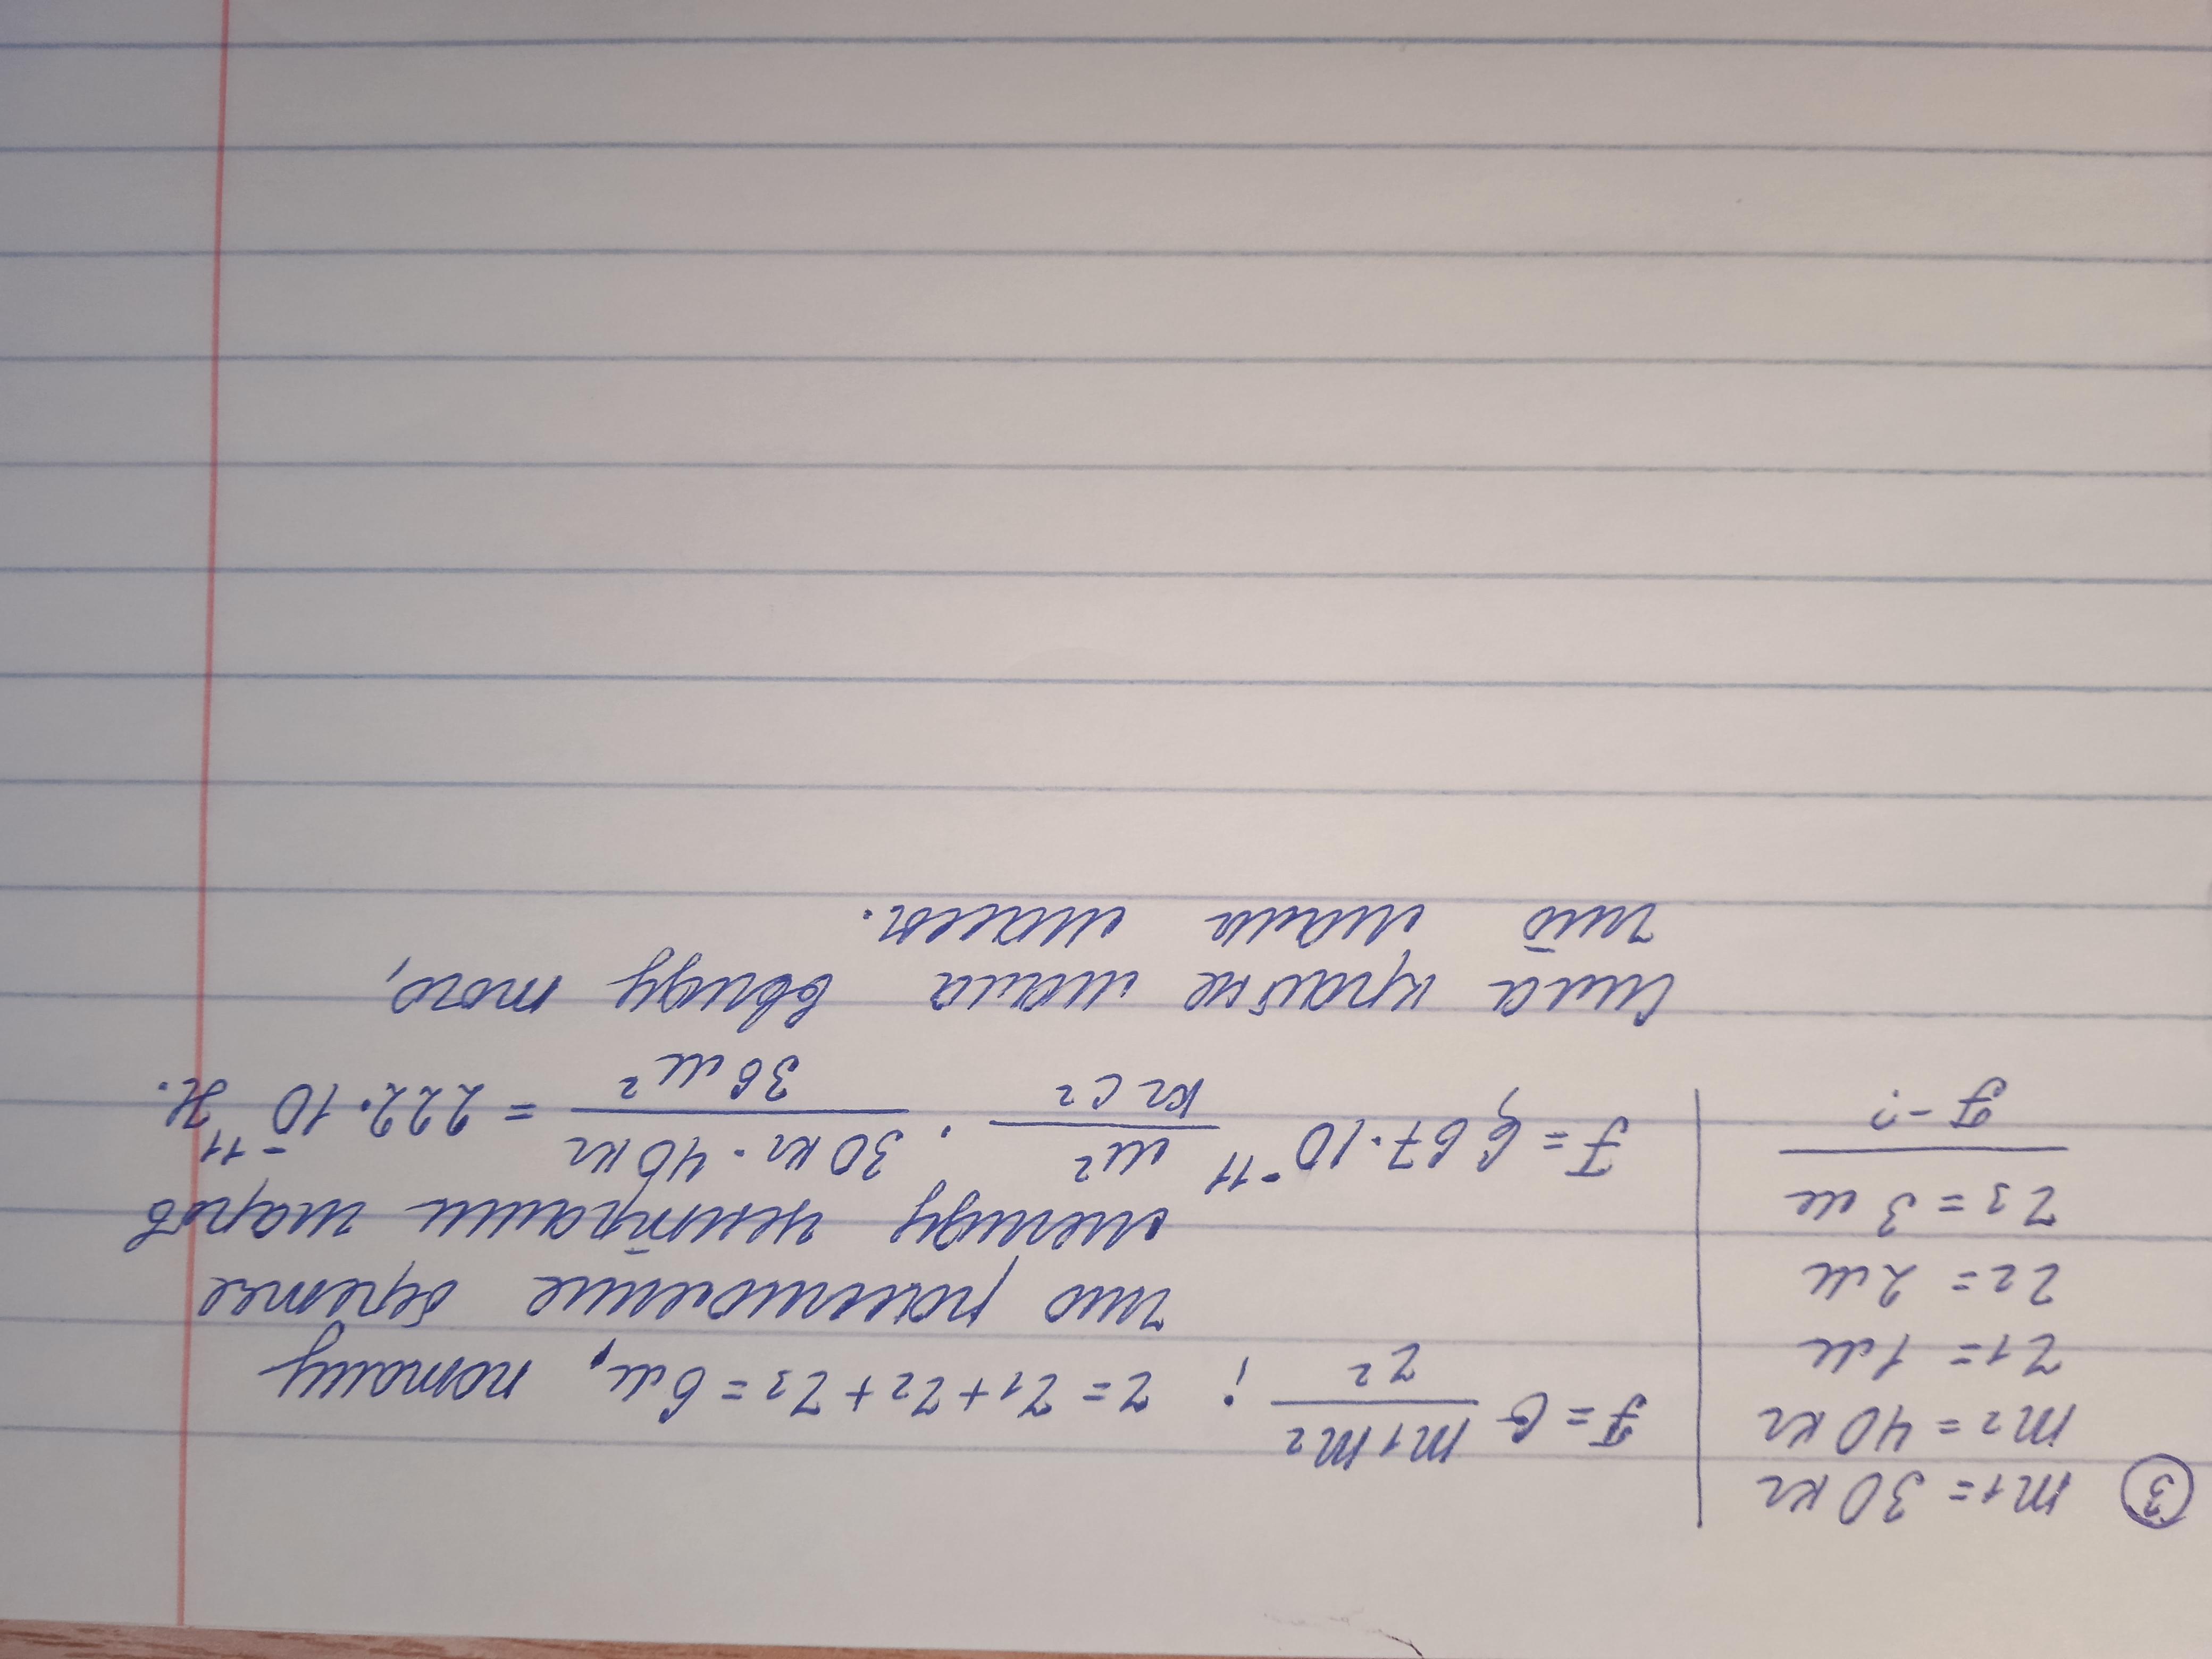 ③ m1 = 30 кг
m2 = 40 кг
r1 = 1 м
r2 = 2 м
r3 = 3 м
F - ?
F = G m1m2 / r² ; r = r1 + r2 + r3 = 6 м, потому
что расстояние берется
между центрами шаров
F = 6,67 · 10⁻¹¹ м² / кг с² · 30 кг · 40 кг / 36 м² = 222 · 10⁻¹¹ Н.
Сила крайне мала ввиду того,
что мала масса.